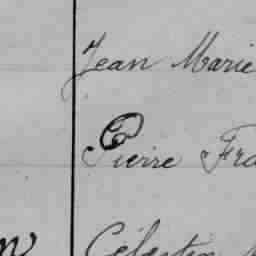 Jean Marie
Pierre Fra
Célestin